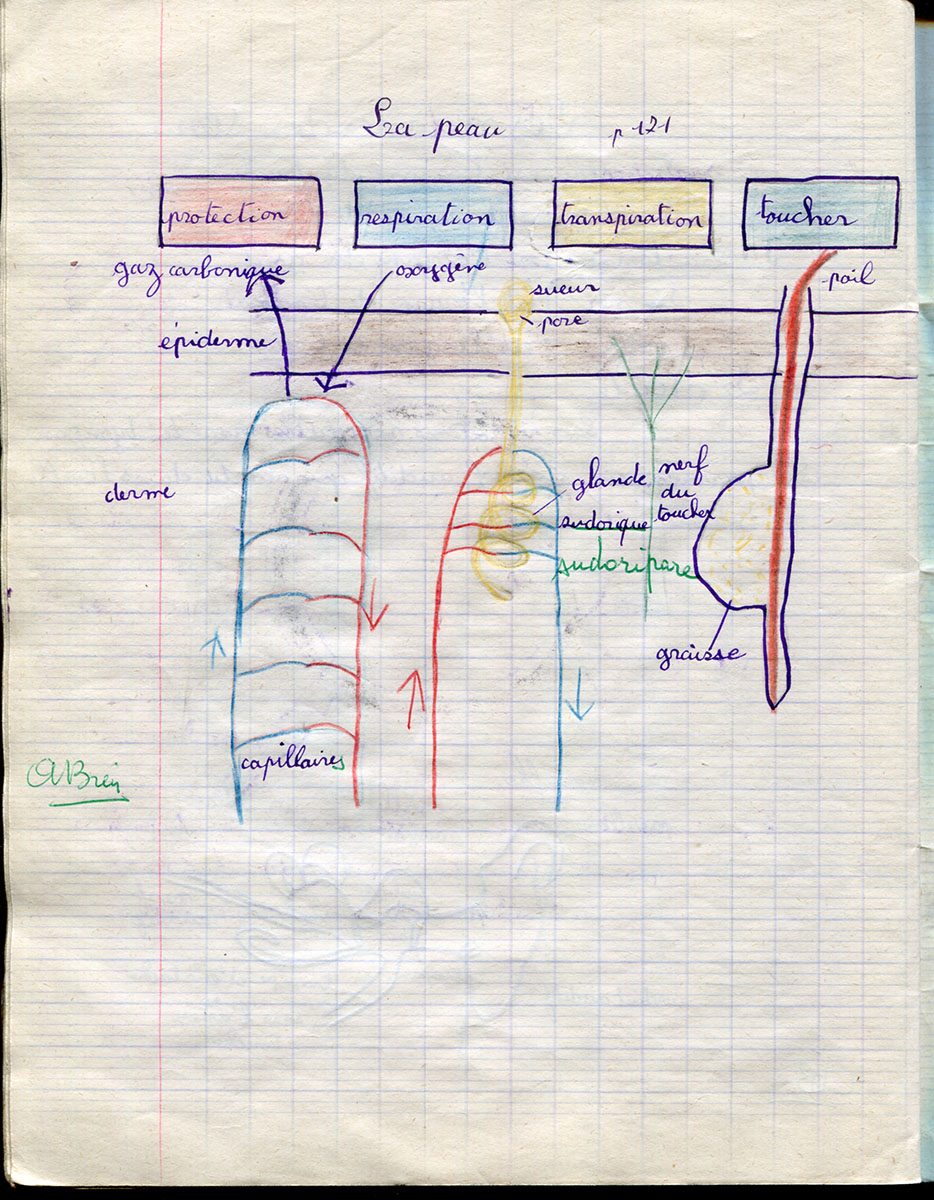 La peau p 121
protection respiration transpiration toucher
gaz carbonique oxygène sueur poil
pore
épiderme
derme
glande nerf
du
sudorique toucher
sudoripare
graisse
capillaires